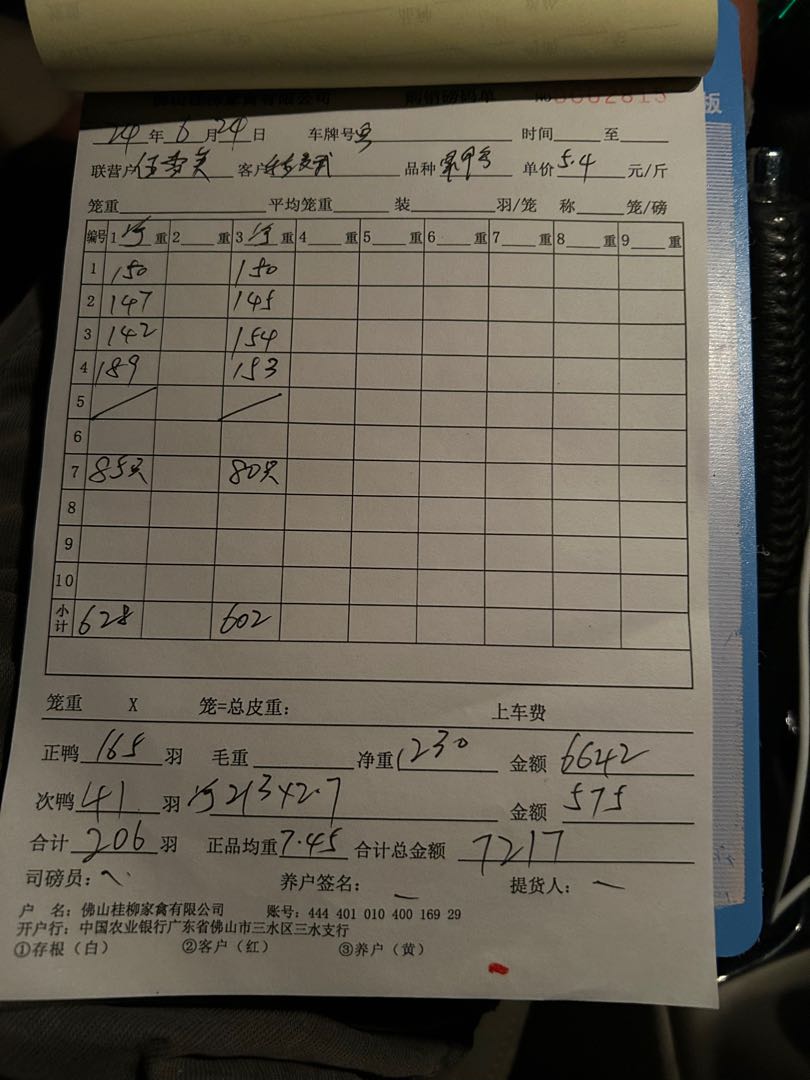 佛山桂柳家禽有限公司 购销磅码单 NO 0002815
版
24年6月24日 车牌号 时间 至
联营户 客户 品种 单价5.4元/斤
笼重 平均笼重 装 羽/笼 称 笼/磅
编号 1 净 重 2 重 3 净 重 4 重 5 重 6 重 7 重 8 重 9 重
1 150 150
2 147 145
3 142 154
4 189 153
5
6
7 85只 80只
8
9
10
小计 628 602
笼重 X 笼=总皮重: 上车费
正鸭165羽 毛重 净重1230 金额6642
次鸭41羽 净213×2.7 金额575
合计206羽 正品均重7.45 合计总金额7217
司磅员: 养户签名: 提货人:
户 名: 佛山桂柳家禽有限公司 账号: 444 401 010 400 169 29
开户行: 中国农业银行广东省佛山市三水区三水支行
①存根(白) ②客户(红) ③养户(黄)